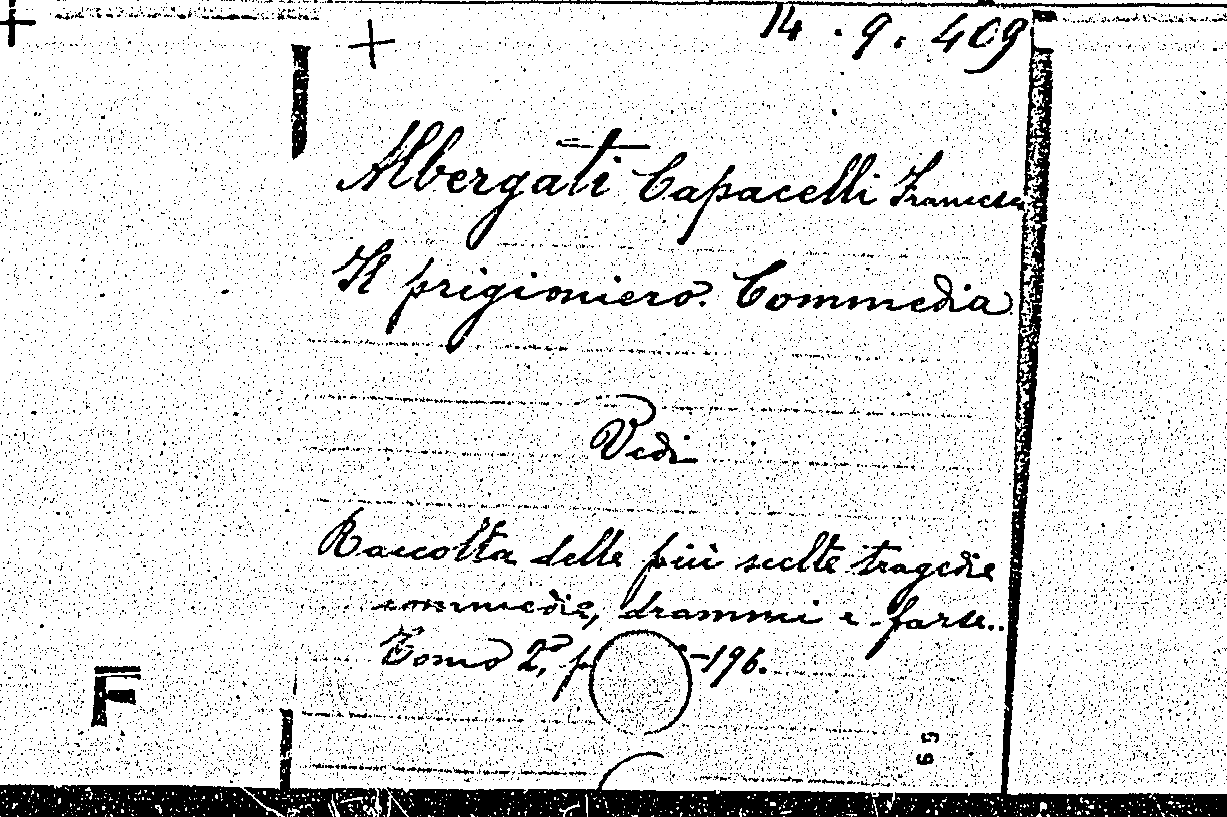 14.9.409
Albergati Capacelli Francesco
Il prigioniero. Commedia
Vedi
Raccolta delle più scelte tragedie
commedie, drammi e farse..
Tomo 2º, p -196.
F
69